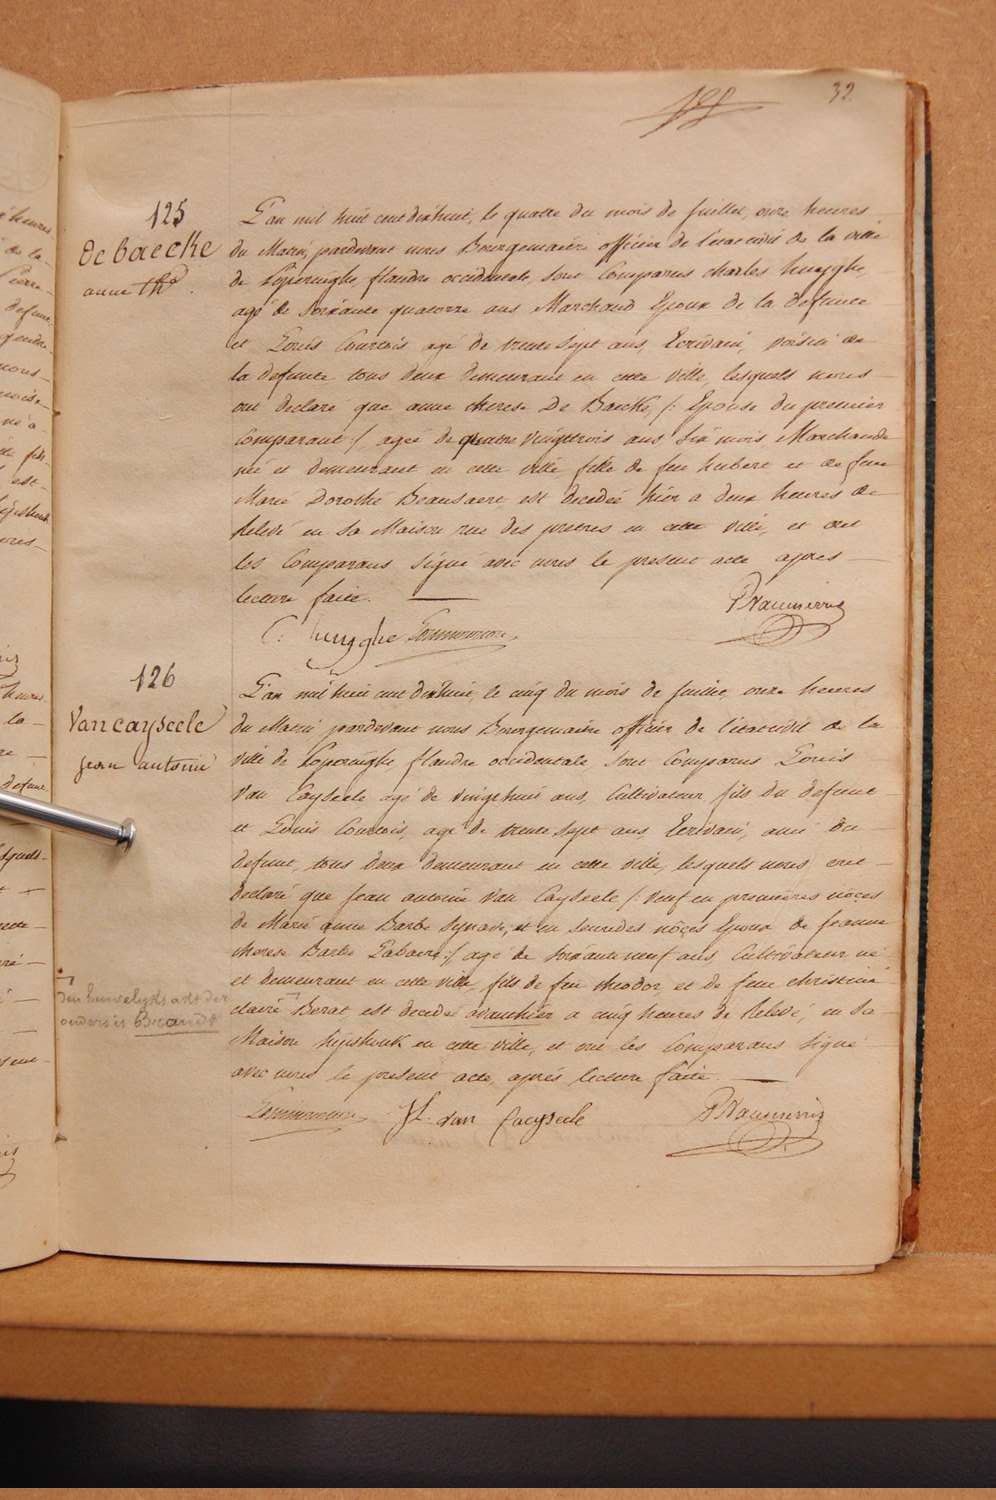 32
125
De baecke
anne Thd.
L'an mil huit cent dixhuit, le quatre du mois de juillet, onze heures
du Matin, pardevant nous Bourgemaitre officier de l'etat civil de la ville
de Poperinghe, flandre occidentale, sont Comparus charles huyghe,
agé de soixante quatorze ans Marchand Epoux de la defunte
et Louis Courtois agé de trente sept ans, Ecrivain, voisin de
la defunte tous deux demeurant en cette ville, lesquels nous
ont declaré que anne therese De Baecke, /: Epouse du premier
Comparant :/ agée de quatre vingt trois ans six mois Marchande
né et demeurant en cette ville, fille de feu hubert et de feue
Marie Dorothe Beausaert est decedée hier a deux heures de
Relevé en sa Maison rue des pretres en cette ville, et ont
les Comparans signé avec nous le present acte apres
lecture faite.
C. huyghe
126
Van cayseele
jean antoine
L'an mil huit cent dixhuit, le cinq du mois de juillet, onze heures
du Matin pardevant nous Bourgemaitre officier de l'etat civil de la
ville de Poperinghe, flandre occidentale, sont Comparus Louis
Van Cayseele agé de vingt huit ans, Cultivateur fils du defunt
et Louis Courtois, agé de trente sept ans Ecrivain, ami du
defunt, tous deux demeurant en cette ville, lesquels nous ont
declaré que jean antoine Van Cayseele /: veuf en premieres nôces
de Marie anne Barbe Synave, et en secondes nôçes Epoux de jeanne
therese Barbe Labaere :/ agé de soixante neuf ans Cultivateur né
et demeurant en cette ville, fils de feu theodor et de feue christine
claire Berat est decedé avanthier a cinq heures de Relevé, en sa
Maison en cette ville, et ont les Comparans signé
avec nous le present acte, aprés lecture faite
in huwelijks akt der
ouders is Brandt
JL. van Cacyseele